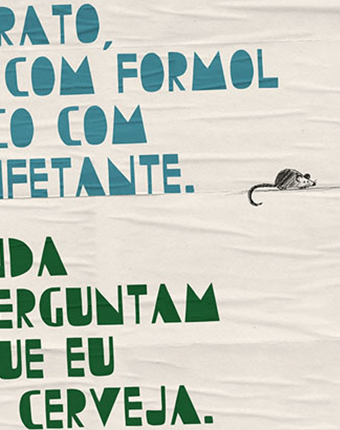 RATO,
COM FORMOL
CO COM
IFETANTE.
NDA
ERGUNTAM
UE EU
CERVEJA.